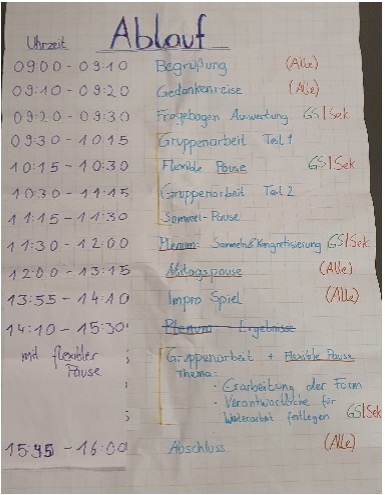 Ablauf
Uhrzeit
09:00 - 09:10 Begrüßung (Alle)
09:10 - 09:20 Gedankenreise (Alle)
09:20 - 09:30 Fragebogen Auswertung GS|Sek
09:30 - 10:15 Gruppenarbeit Teil 1
10:15 - 10:30 Flexible Pause GS|Sek
10:30 - 11:15 Gruppenarbeit Teil 2
11:15 - 11:30 Sammel-Pause
11:30 - 12:00 Plenum: Sammeln&Kongretisierung GS|Sek
12:00 - 13:15 Mittagspause (Alle)
13:55 - 14:10 Impro Spiel (Alle)
14:10 - 15:30 Plenum - Ergebnisse
mit flexibler Pause
Gruppenarbeit + Flexible Pause
Thema:
· Erarbeitung der Form
· Verantwortliche für
Weiterarbeit festlegen GS|Sek
15:45 - 16:00 Abschluss (Alle)